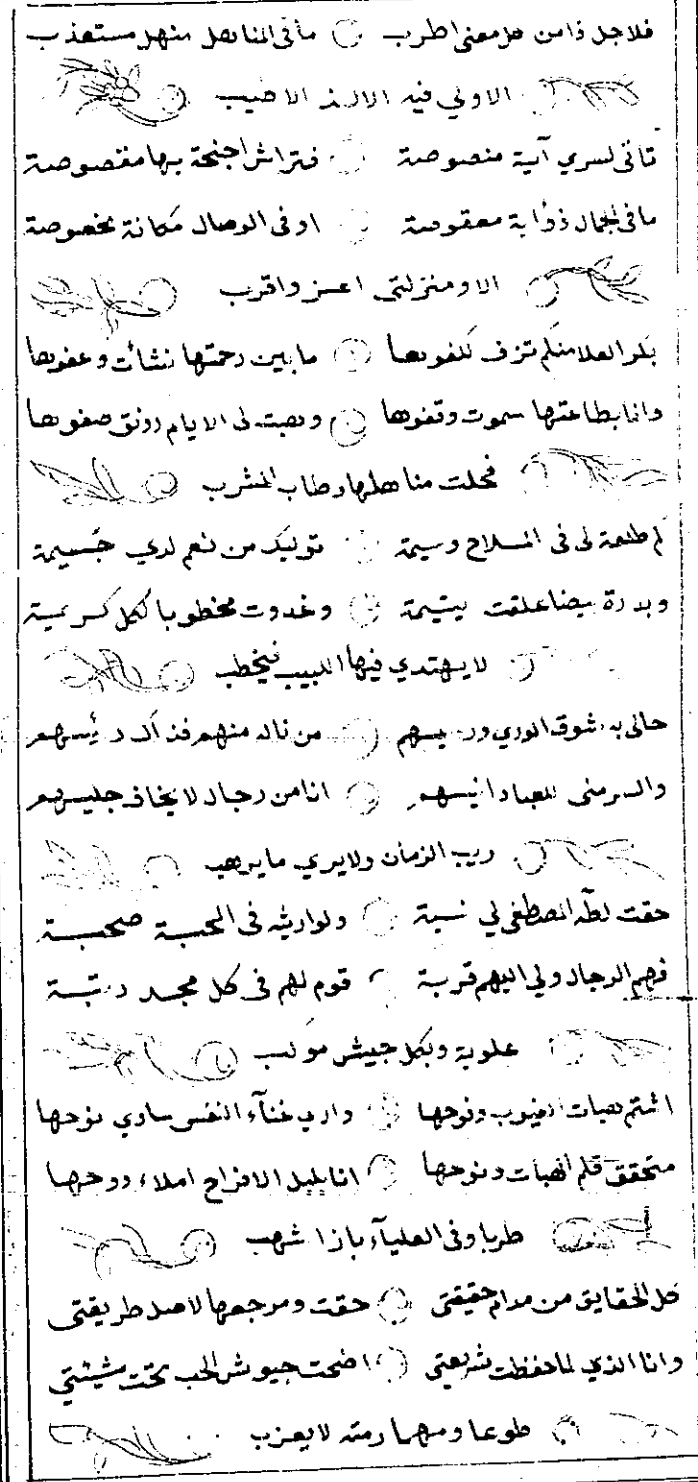 فلاجل ذا من كل معنى اطرب ما في المناهل منهل مستعذب
الا ولي فيه الالذ الاطيب
تأتي لسري آية منصوصة فتراش اجنحة بها مقصوصة
ما في الجمال ذؤابة معقوصة او في الوصال مكانة مخصوصة
الا ومنزلتي اعز واقرب
بكر العلا منكم تزف لكفوها ما بين رحمتها نشأت وعفوها
وانا بطاعتها سموت وقفوها وهبت لي الايام رونق صفوها
فحلت مناهلها وطاب المشرب
كم طلعة لي في الملاح وسيمة توليك من نعم لدي جسيمة
وبدرة بيضا علقت يتيمة وغدوت مخطوبا لكل كريمة
لا يهتدي فيها اللبيب فيخطب
حالي به شوق الوري ورسيسهم من ناله منهم فذاك رئيسهم
والسر مني للعباد انيسهم انا من رجال لا يخاف جليسهم
ريب الزمان ولا يري ما يرهب
حقت لطه المصطفى لي نسبة ولوارثيه في المحبة صحبة
فهم الرجال ولي اليهم قربة قوم لهم في كل مجد رتبة
علوية وبكل جيش موكب
اشتم هبات الغيوب ونوحها وارى غنآء النفس ساوي نوحها
متحقق قلم الهبات ولوحها انا بلبل الافراح املاء دوحها
طربا وفي العليآء باز اشهب
كل الحقايق من مدام حقيقتي حقت ومرجعها لاصل طريقتي
وانا الذي لما حفظت شريعتي اضحت جيوش الحب تحت مشيئتي
طوعا ومهما رمته لا يعزب